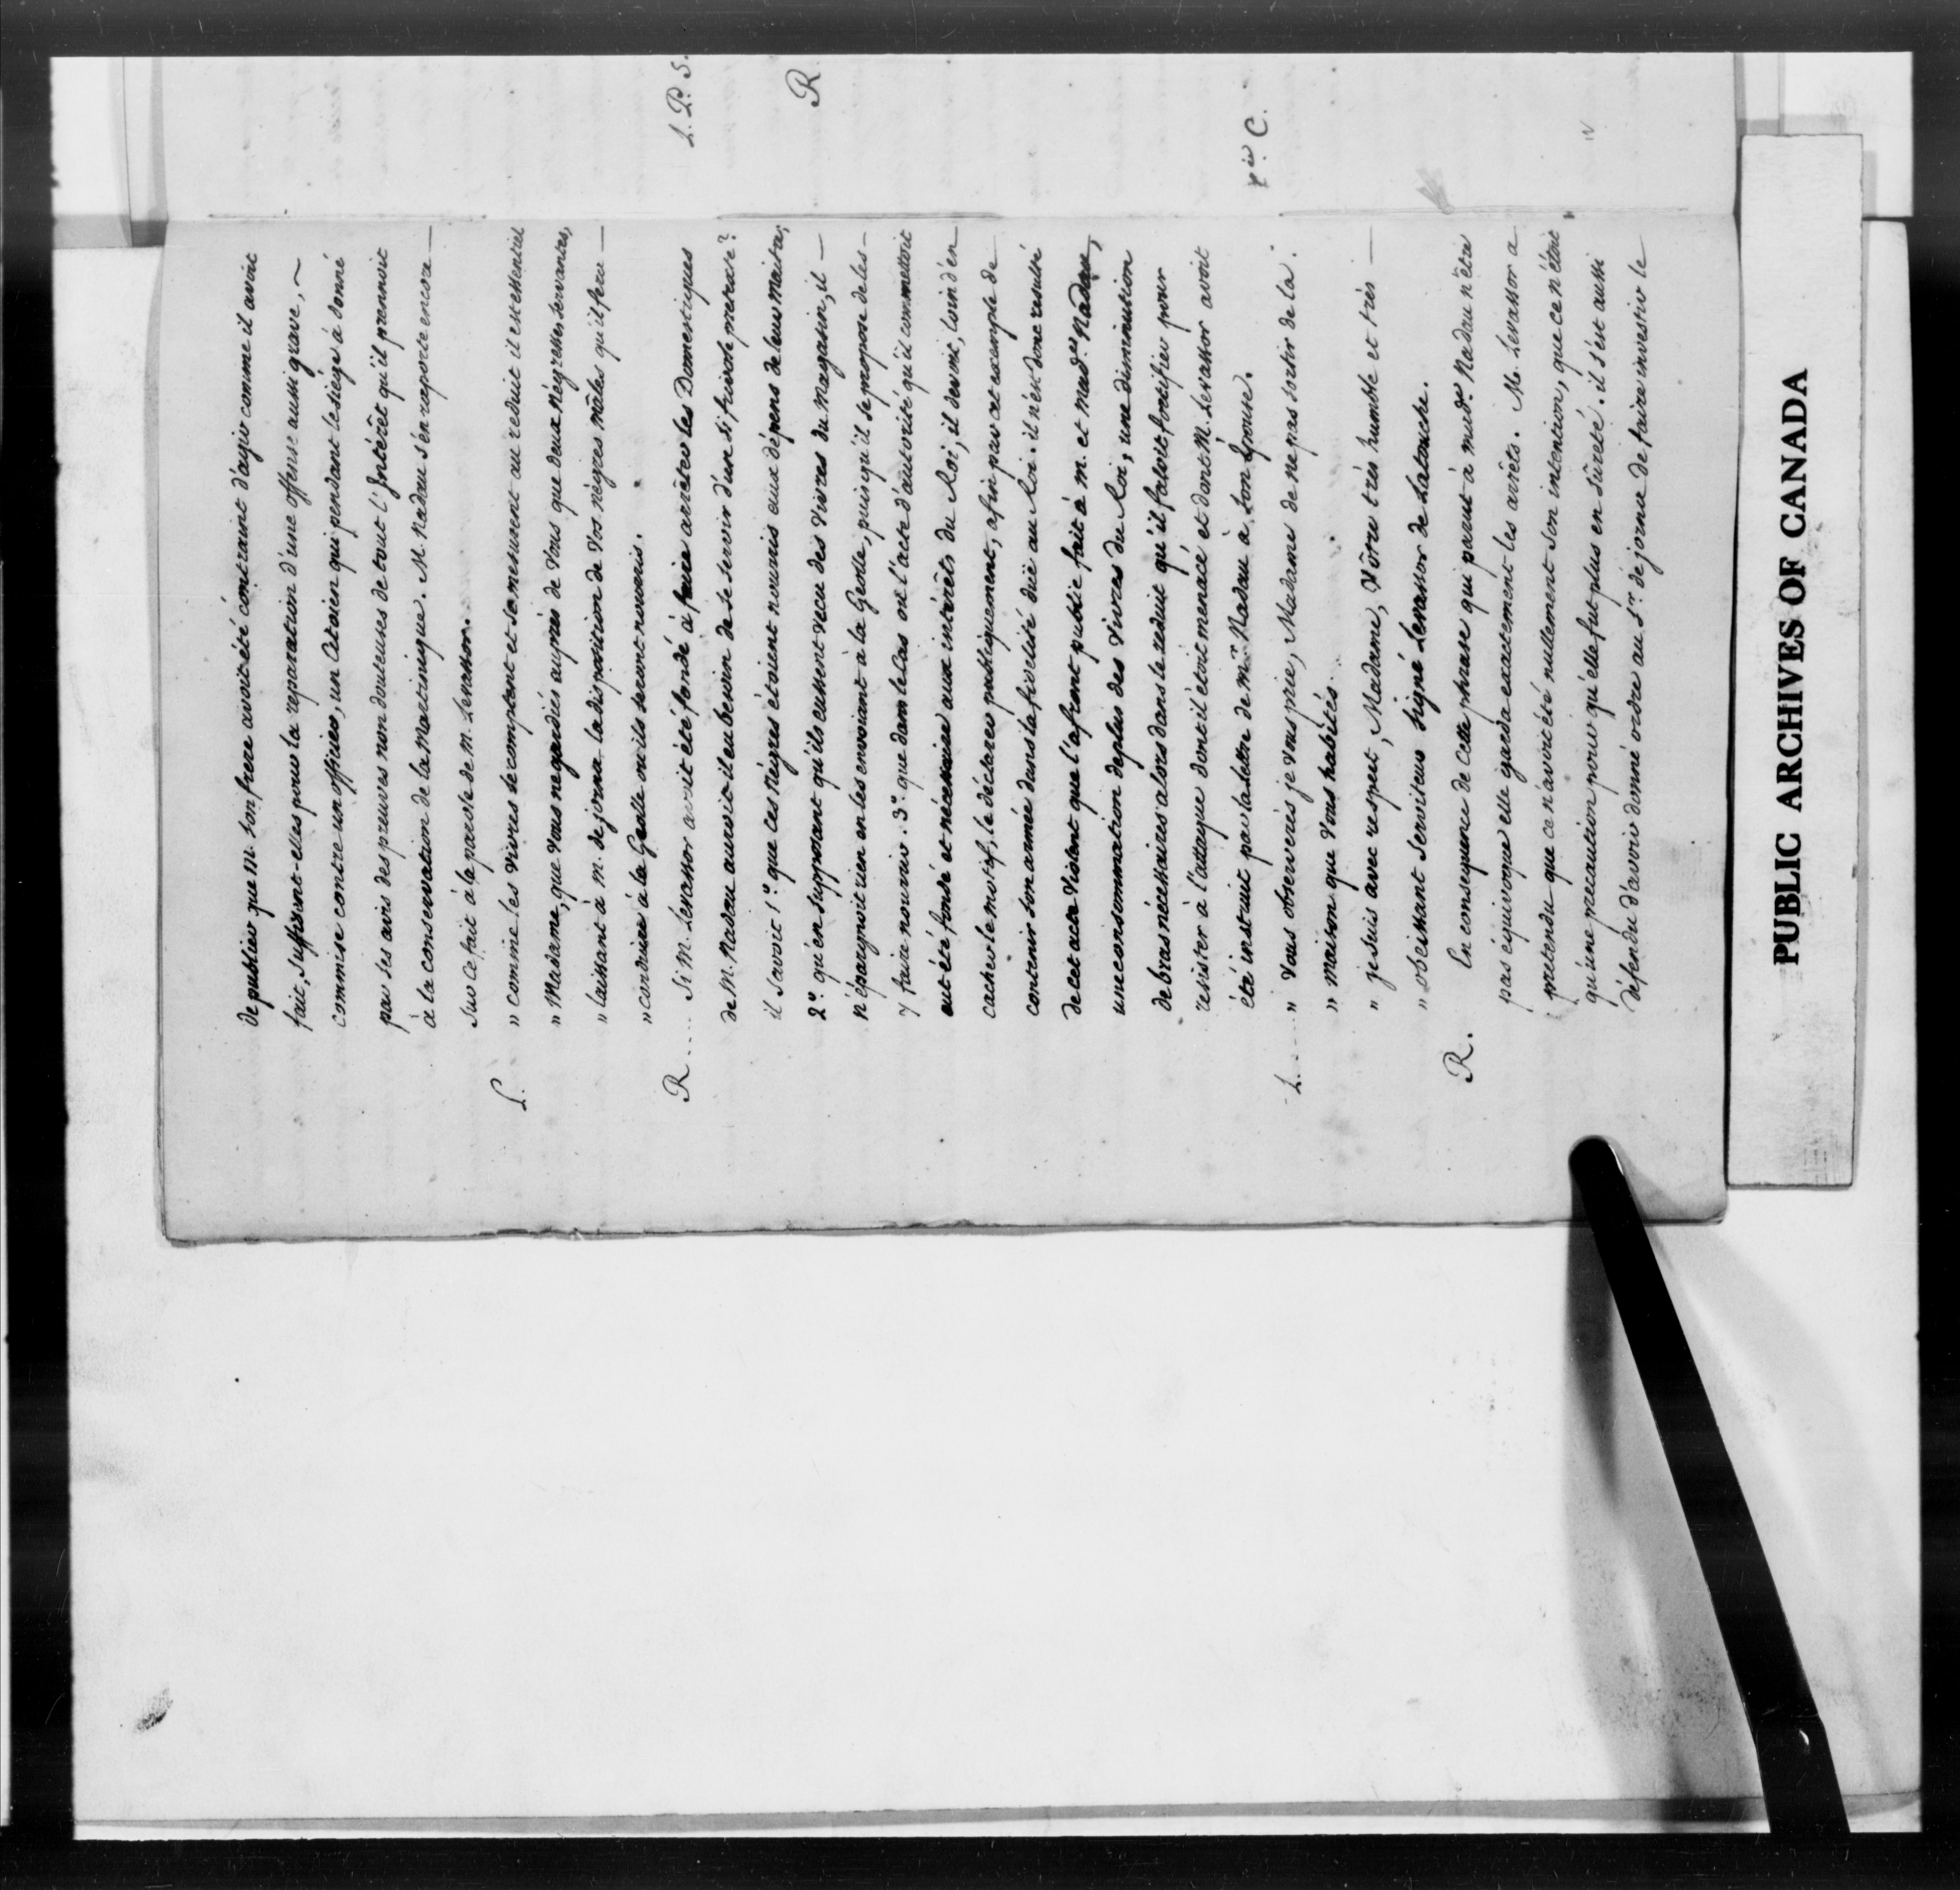 de publier que M. son frere avoit été contraint d'agir comme il avoit
fait, suffisent-elles pour la reparation d'une offense aussi grave, ~
commise contre un officier, un Citoien qui pendant le siége à donné
par ses avis des preuves non douteuses de tout l'Intérêt qu'il prennoit
à la conservation de la Martinique. M. Nadau s'en raporte encore —
sur ce fait à la parole de M. Levassor.
L.
" comme les vivres se comptent et se mesurent au reduit il est essentiel
" Madame, que vous ne gardiés auprès de vous que deux négresses servantes,
" laissant à M. de jorna la disposition de vos négres mâles qu'il fera —
" conduire à la Geolle ou ils seront nourris.
R... Si M. Levassor avoit été fondé à faire arrêter les Domestiques
de M. Nadau auroit-il eu besoin de se servir d'un si frivole pretexte?
il savoit 1.° que ces Négres étoient nourris aux dépens de leur maitre;
2.° qu'en supposant qu'ils eussent vecu des vivres du Magasin, il —
n'épargnoit rien en les envoiant à la Geolle, puisqu'il se propose de les —
y faire nourrir. 3.° que dans le cas ou l'acte d'autorité qu'il commettoit
eut été fondé et nécessaire aux intérêts du Roi, il devoit, loin d'en
cacher le motif, le déclarer publiquement, afin par cet exemple de
contenir son armée dans la fidelité düe au Roi. il n'est donc resulté
de cet acte violent que l'afront public fait à M. et Mad.e Nadau,
une consommation de plus des vivres du Roi, une diminution
de bras nécessaires alors dans le reduit qu'il faloit fortifier pour
resister à l'attaque dont il étoit menacé et dont M. Levassor avoit
été instruit par la lettre de M.r Nadau à son Epouse.
L.... " vous observerés je vous prie, Madame de ne pas sortir de la
" maison que vous habités.
" je suis avec respect, Madame, Vôtre très humble et très —
" obeissant serviteur signé Levassor de Latouche.
R. En consequence de cette phrase qui parut à mad.e Nadau n'être
pas équivoque elle garda exactement les arrêts. M. Levassor a
pretendu que ce n'avoit été nullement son intention, que ce n'étoit
qu'une precaution pour qu'elle fut plus en sûreté. il s'est aussi
défendu d'avoir donné ordre au S.r de jorna de faire investir le
L. P. S.
R
C.
PUBLIC ARCHIVES OF CANADA